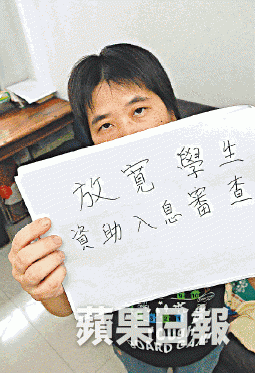 放寬學生
資助入息審查
蘋果日報
BOARD